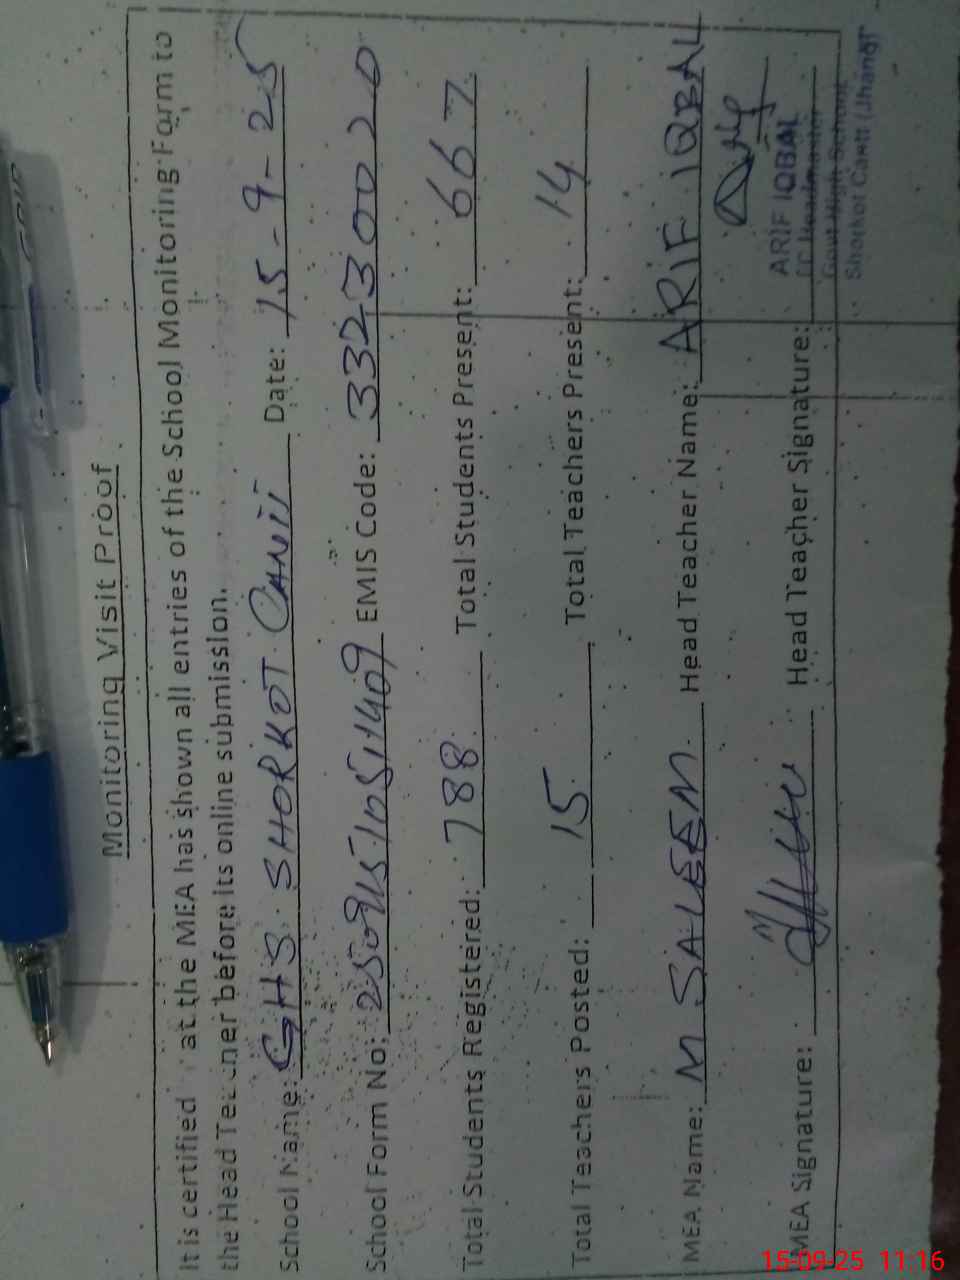 Monitoring Visit Proof
It is certified at the MEA has shown all entries of the School Monitoring Form to
the Head Teacher before its online submission.
School Name: GHS SHORKOT CANTT Date: 15-9-25
School Form No: EMIS Code: 33230020
Total Students Registered: 788 Total Students Present: 667
Total Teachers Posted: 15 Total Teachers Present: 14
MEA Name: M SALEEM Head Teacher Name: ARIF IQBAL
MEA Signature: Head Teacher Signature:
ARIF IQBAL
Headmaster
Govt High School
Shorkot Cantt (Jhang)
15-09-25 11:16